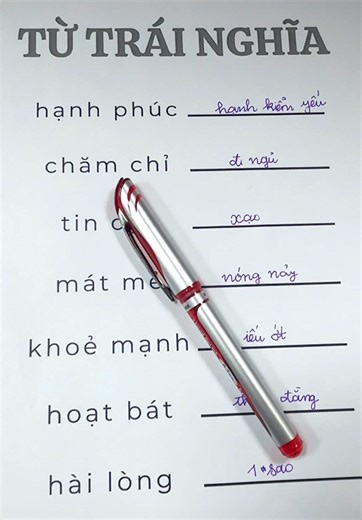 TỪ TRÁI NGHĨA
hạnh phúc hạnh kiểm yếu
chăm chỉ đi ngủ
tin xạo
mát mẻ nóng nảy
khoẻ mạnh iếu ớt
hoạt bát đắng
hài lòng 1 sao